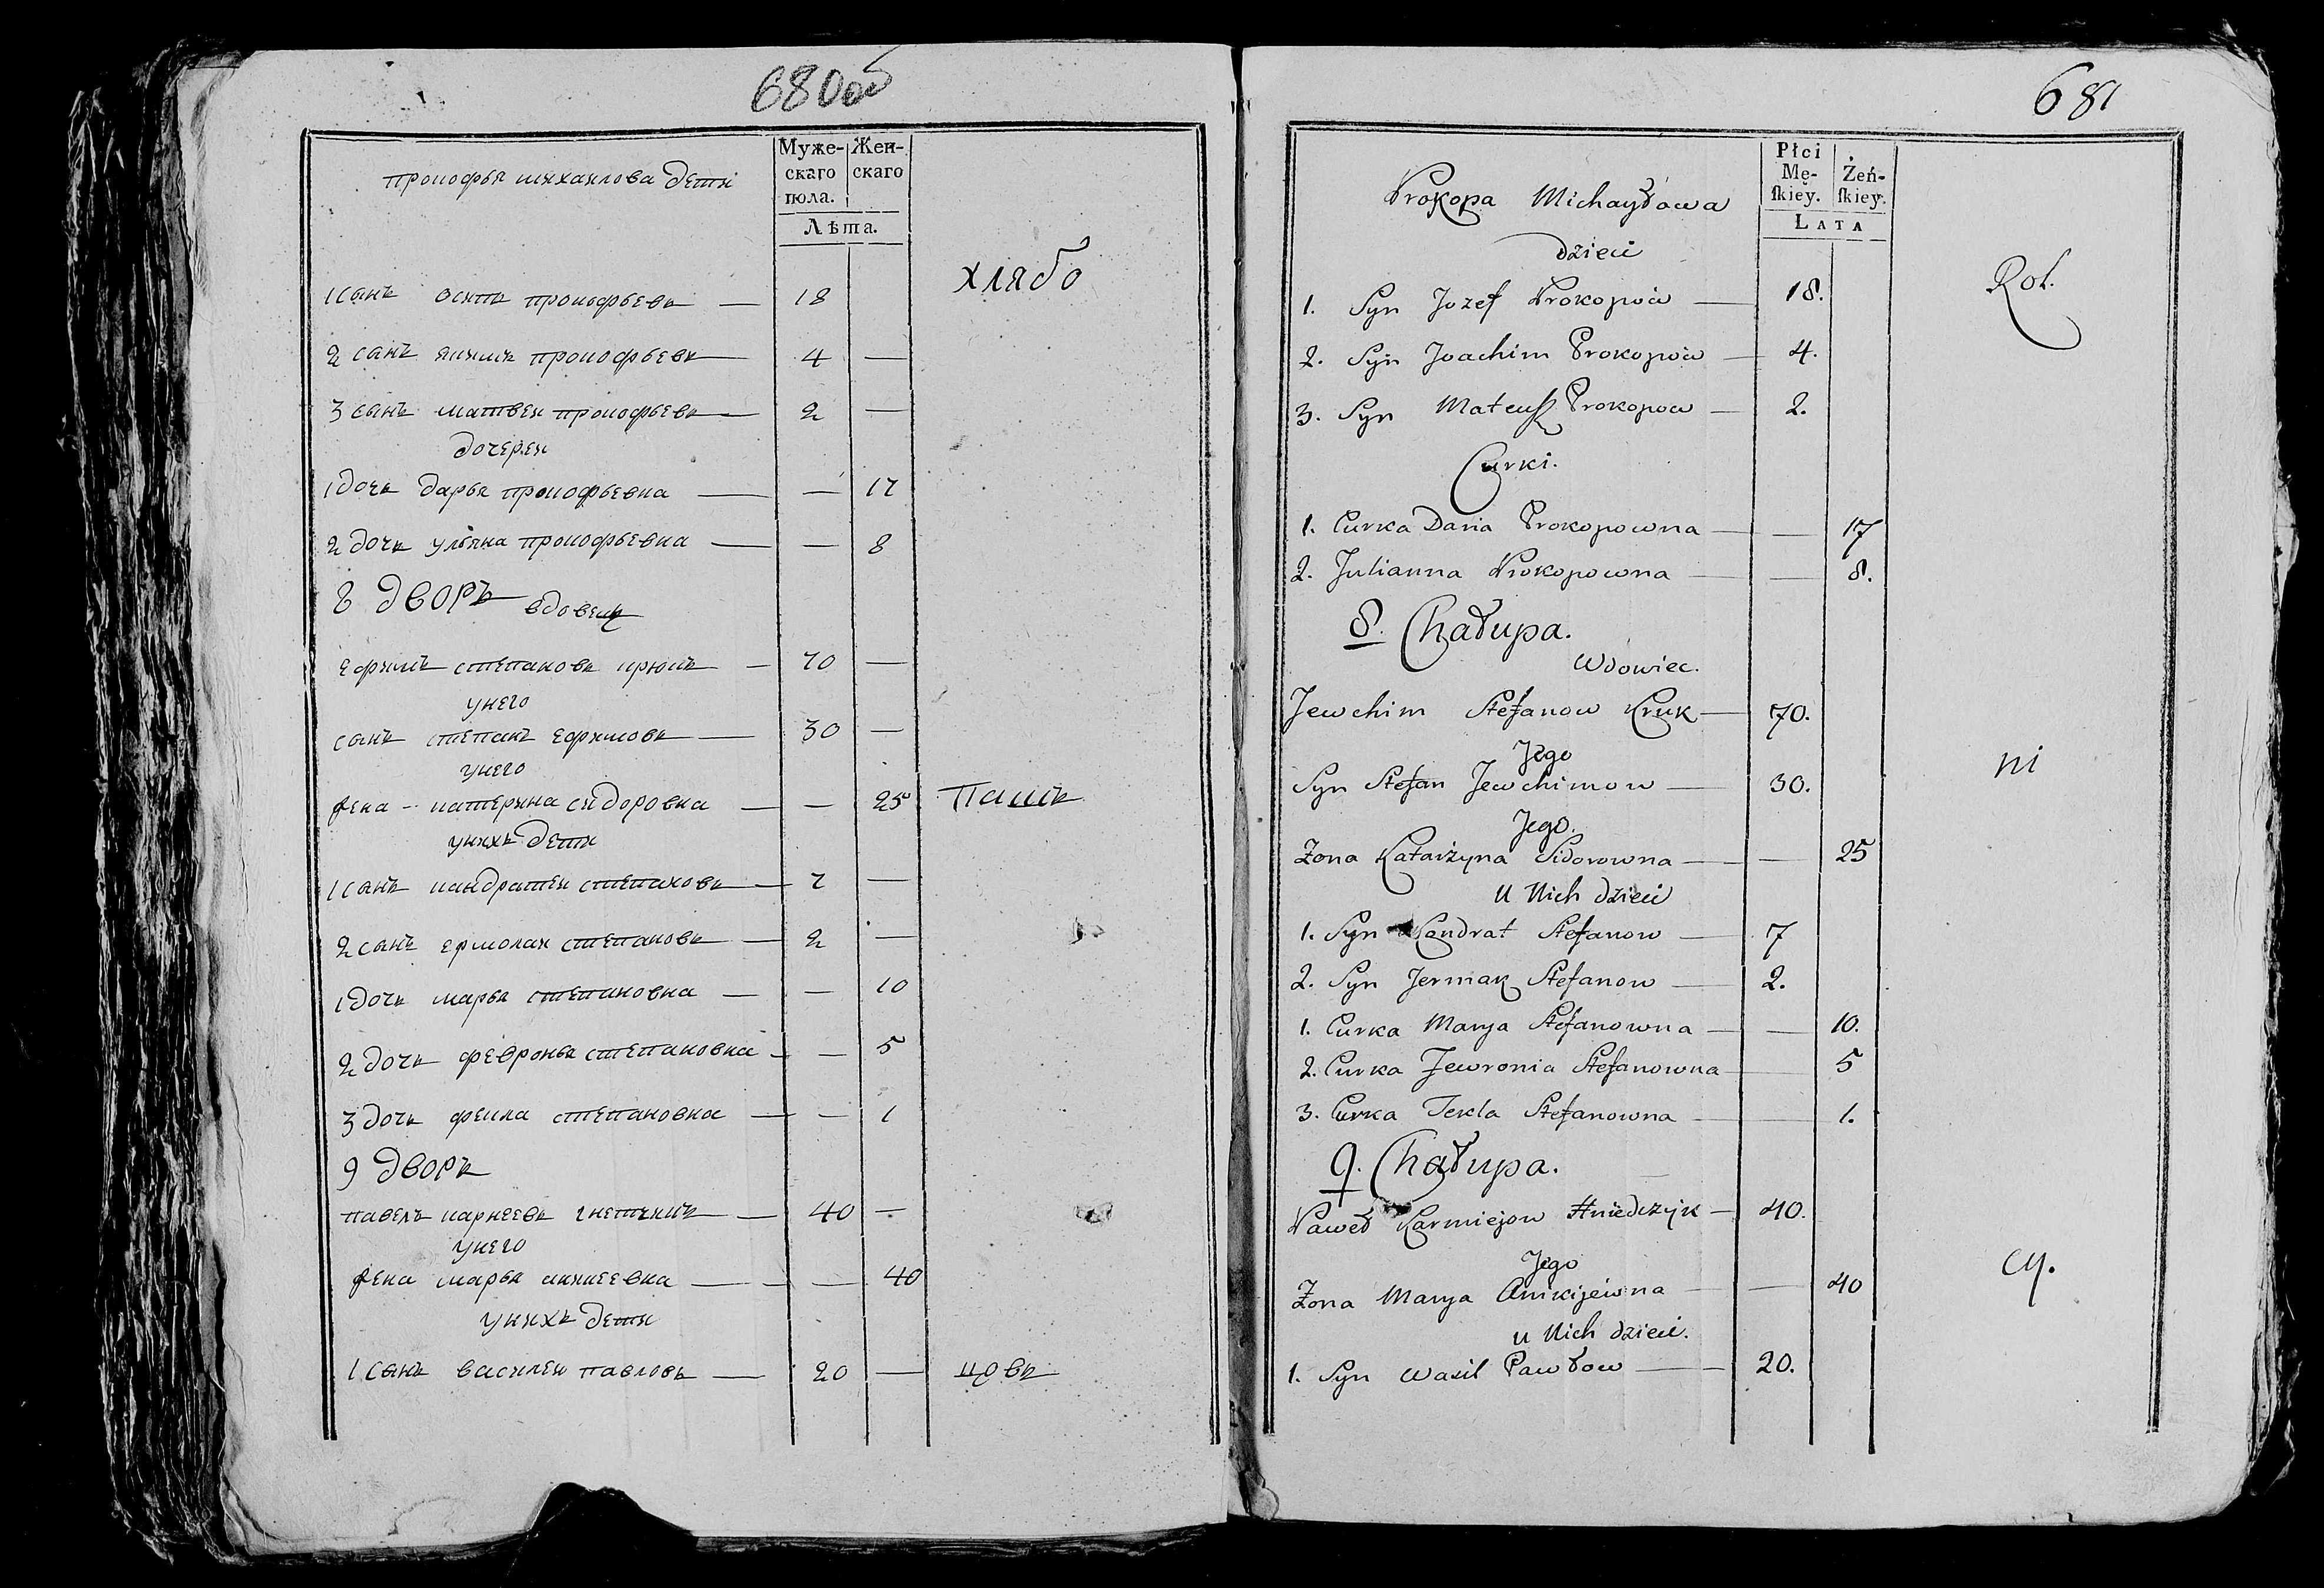 680об
Муже- Жен-
скаго скаго
пола.
Лѣта.
прокофья михаилова дети
хлябо
1 сынъ осипъ прокофьевъ — 18
2 сынъ якимъ прокофьевъ — 4 —
3 сынъ матвей прокофьевъ — 2 —
дочерей
1 дочь дарья прокофьевна — — 17
2 дочь ульяна прокофьевна — — 8
8 дворъ вдовецъ
ефимъ степановъ крюкъ — 70 —
унего
сынъ степанъ ефимовъ — 30 —
унего
жена - катерина сидоровна — — 25 пашъ
унихъ дети
1 сынъ кандратей степановъ — 7 —
2 сынъ ермолай степановъ — 2 —
1 дочь марья степановна — — 10
2 дочь февронья степановна — — 5
3 дочь фекла степановна — — 1
9 дворъ
павелъ карнеевъ гнетчикъ — 40 —
унего
жена марья аникеевна — — 40
унихъ дети
1 сынъ василей павловъ — 20 — цовъ
681
Płci Żeń-
Mę- ſkiey.
ſkiey.
LATA
Prokopa Michayłowa
dzieci
Rol.
1. Syn Jozef Prokopow — 18.
2. Syn Joachim Prokopow — 4.
3. Syn Mateuſz Prokopow — 2.
Curki.
1. Curka Daria Prokopowna — — 17
2. Julianna Prokopowna — — 8.
8. Chałupa.
Wdowiec.
Jewchim Stefanow Kruk — 70.
Jego
Syn Stefan Jewchimow — 30.
ni
Jego.
Żona Katarżyna Sidorowna — — 25
U Nich dzieci
1. Syn Kandrat Stefanow — 7
2. Syn Jermak Stefanow — 2.
1. Curka Marya Stefanowna — — 10.
2. Curka Jewronia Stefanowna — 5
3. Curka Tekla Stefanowna — 1.
9. Chałupa.
Paweł Karniejow Hniedczyk — 40.
Jego
Żona Marya Anikijewna — — 40
cy.
u Nich dzieci.
1. Syn Wasil Pawłow — 20.